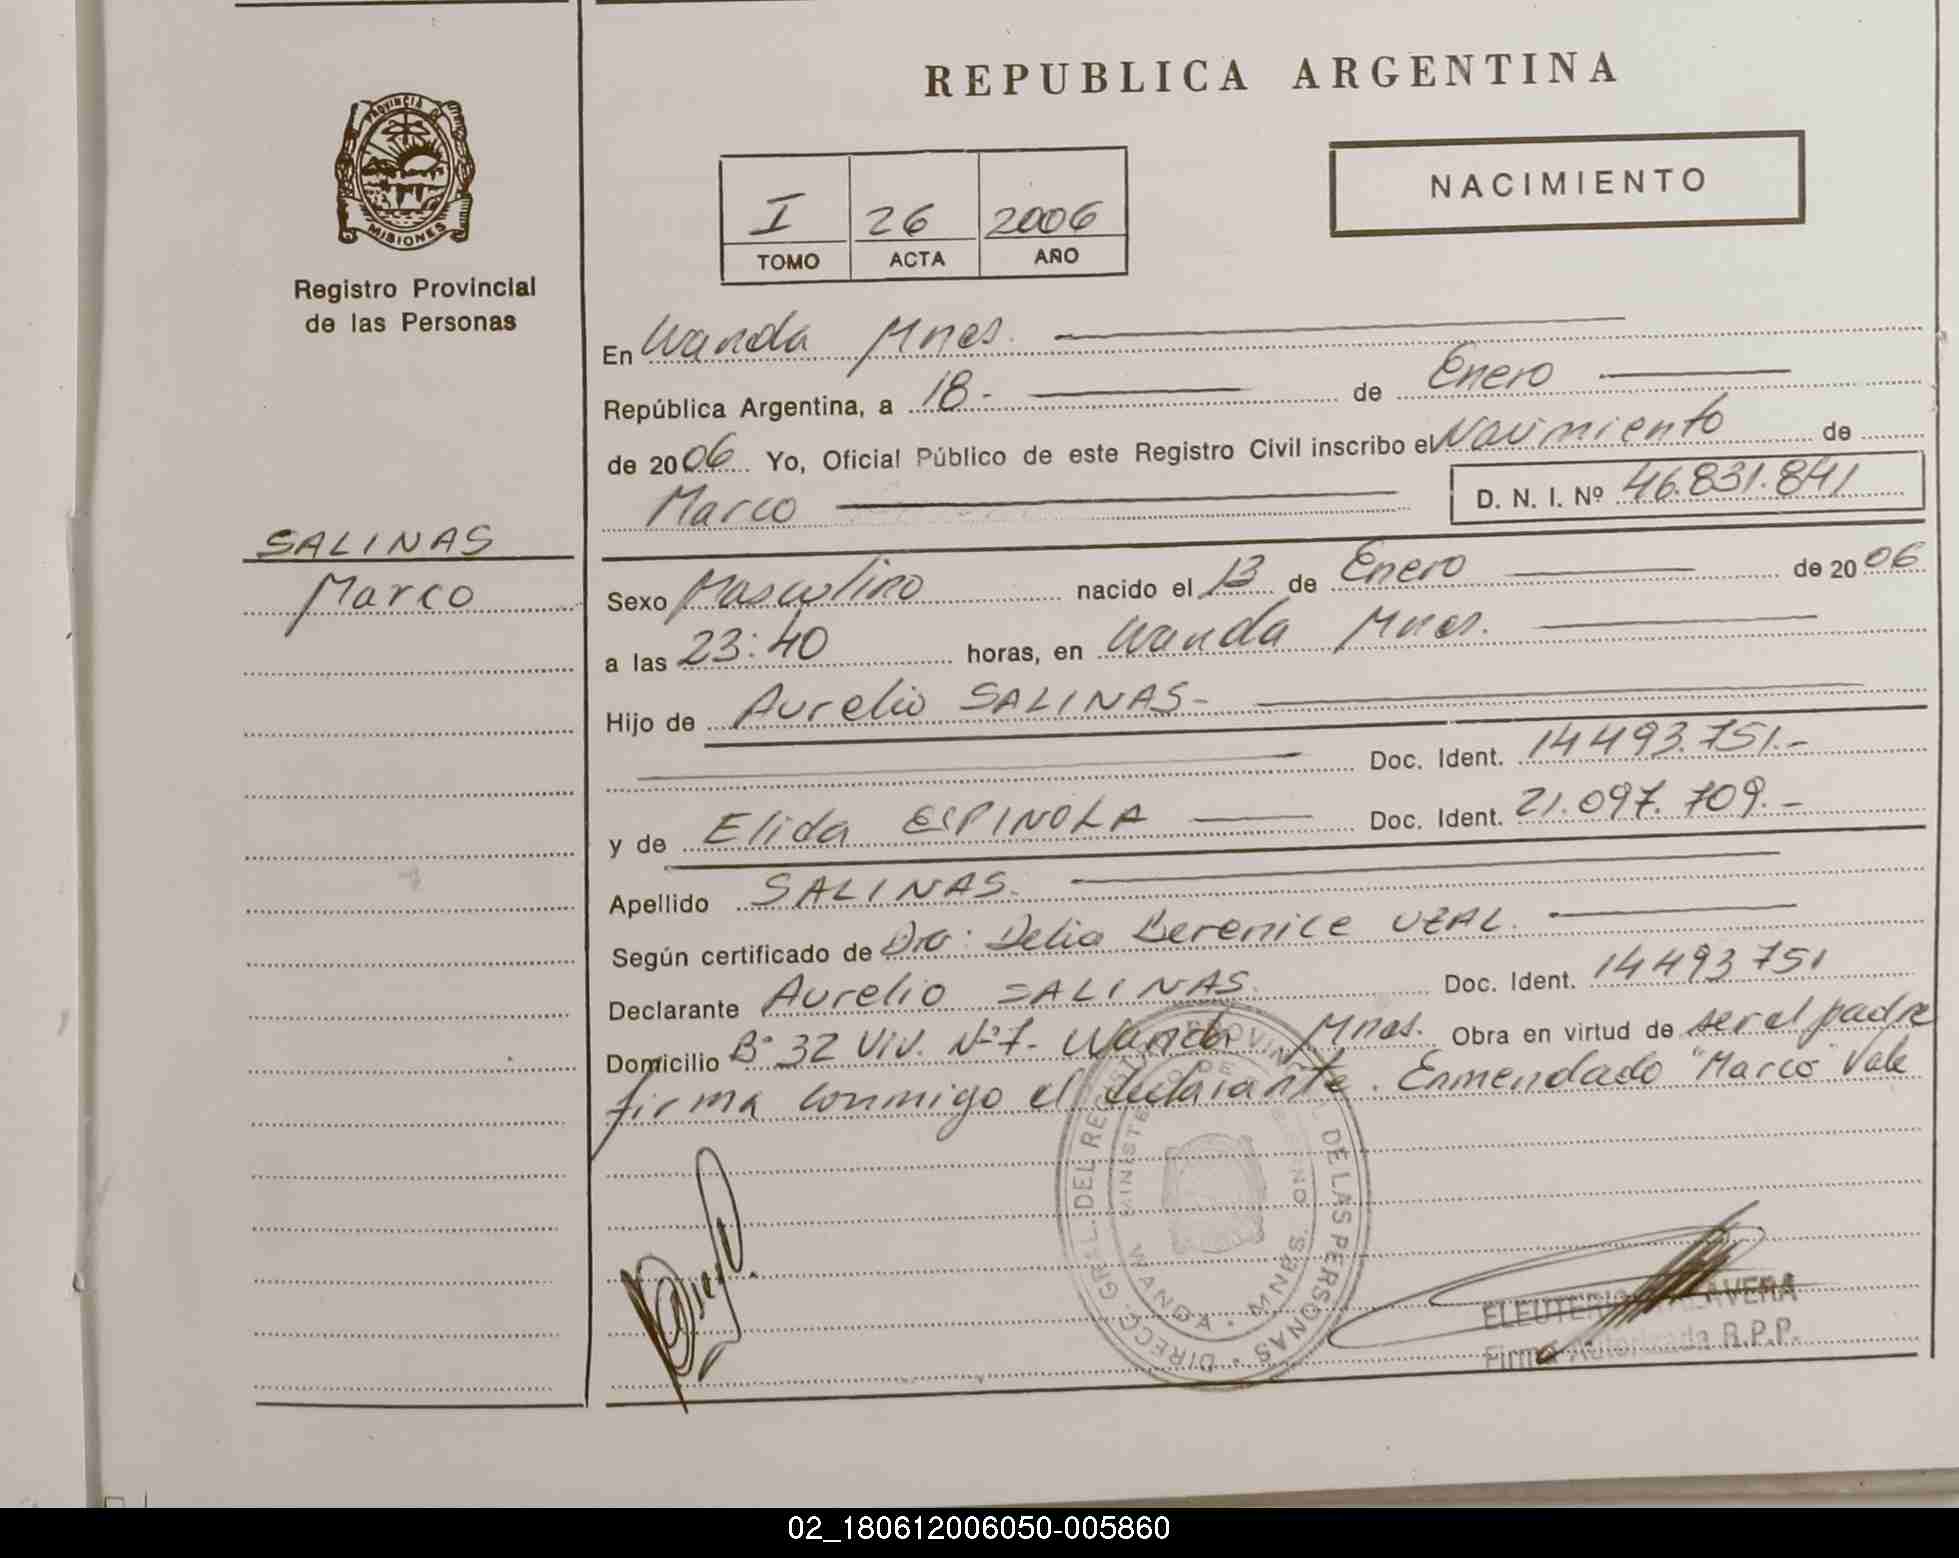 REPUBLICA ARGENTINA
PROVINCIA DE
MISIONES
Registro Provincial
de las Personas
NACIMIENTO
I 26 2006
TOMO ACTA AÑO
En Wanda Mnes.
República Argentina, a 18.- de Enero
de 2006 Yo, Oficial Público de este Registro Civil inscribo el Nacimiento de
Marco D. N. I. Nº 46.831.841
SALINAS
Marco
Sexo Masculino nacido el 13 de Enero de 2006
a las 23:40 horas, en Wanda Mnes.
Hijo de Aurelio SALINAS-
Doc. Ident. 14493.751.-
y de Elida ESPINOLA Doc. Ident. 21.097.709.-
Apellido SALINAS.
Según certificado de Dra: Delia Berenice UZAL.
Declarante Aurelio SALINAS. Doc. Ident. 14493751
Domicilio Bº 32 Viv. Nº 7- Wanda Mnes. Obra en virtud de ser el padre
firma conmigo el declarante. Enmendado "Marco" Vale
DIRECC. GRAL. DEL REGISTRO PROVINCIAL DE LAS PERSONAS
MINISTERIO DE GOBIERNO
WANDA - MNES.
ELEUTERIO TALAVERA
Firma Autorizada R.P.P.
02_180612006050-005860